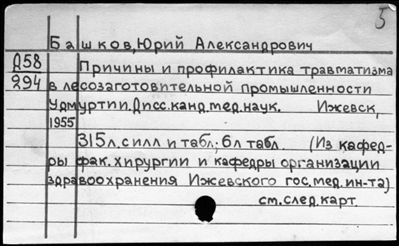 5
Башков, Юрий Александрович
Д58 Причины и профилактика травматизма
294 в лесозаготовительной промышленности
Удмуртии. Дисс. канд. мед. наук. Ижевск,
1955
315 л. с илл и табл; 6 л табл. (Из кафед-
ры фак. хирургии и кафедры организации
здравоохранения Ижевского гос. мед. ин-та)
см. след. карт.